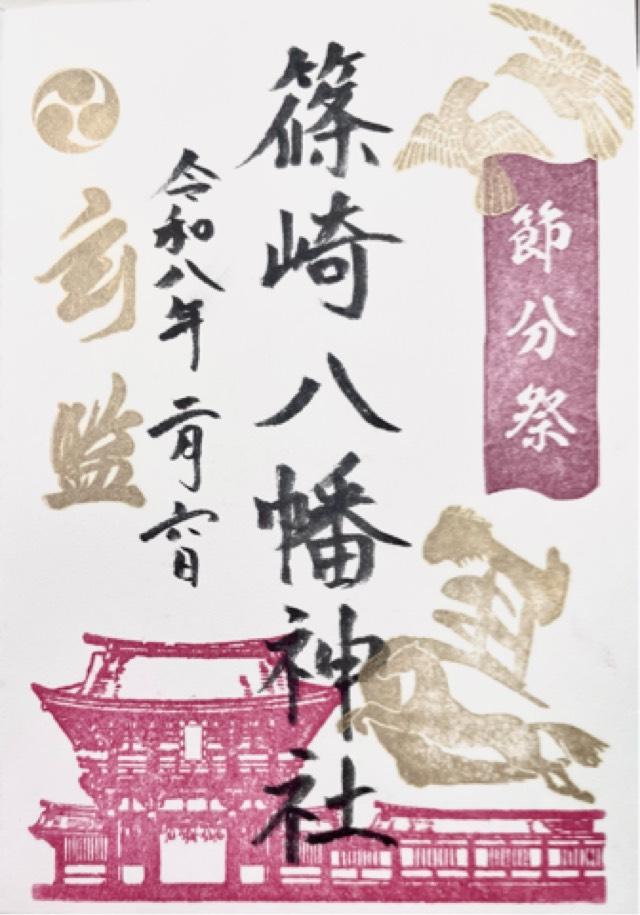 節分祭
篠崎八幡神社
令和八年 二月六日
監